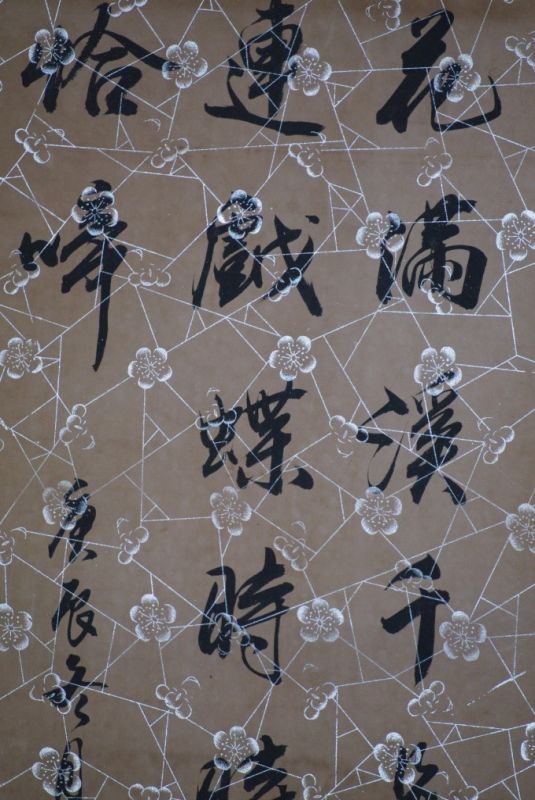 花滿溪千
連戲蝶時時
恰啼
庚辰冬月